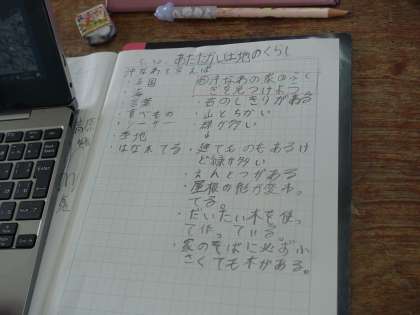 あたたかい土地のくらし
沖なわといえば
・王国
・海
・言葉
・食べもの
・シーサー
・基地
・はなれてる
沖なわの家のふく
さを見つけよう
・石のしきりがある
・山とちがい
緑が多い
・建てものもあるけ
ど緑が多い
・えんとつがある
・屋根の形が変わっ
てる。
・だいたい木を使っ
て作っている
・家のそばに必ず小
さくても木がある。